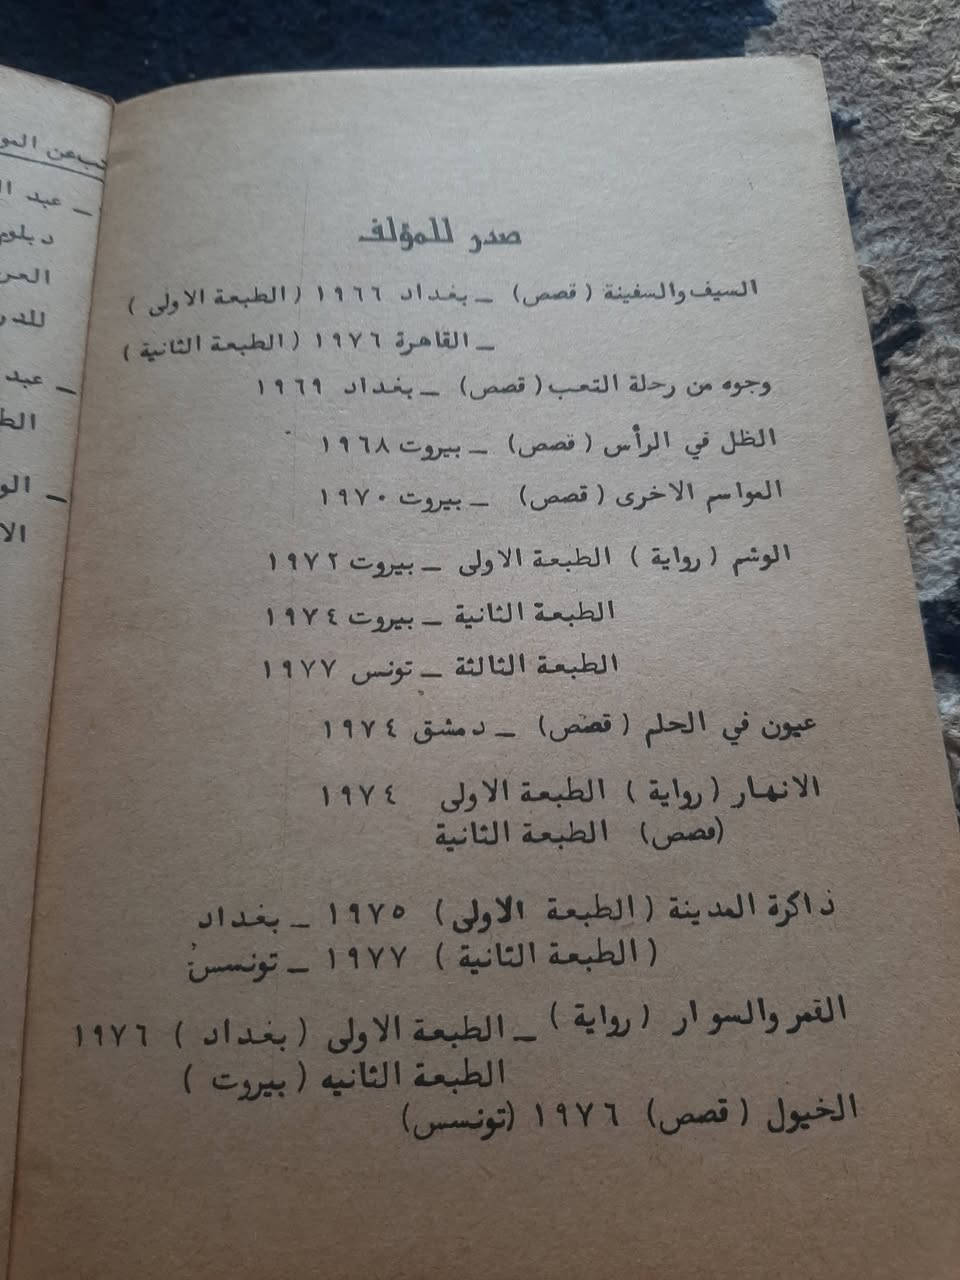 صدر للمؤلف
السيف والسفينة ( قصص ) ــ بغداد ١٩٦٦ ( الطبعة الاولى )
ــ القاهرة ١٩٧٦ ( الطبعة الثانية )
وجوه من رحلة التعب ( قصص ) ــ بغداد ١٩٦٩
الظل في الرأس ( قصص ) ــ بيروت ١٩٦٨
المواسم الاخرى ( قصص ) ــ بيروت ١٩٧٠
الوشم ( رواية ) الطبعة الاولى ــ بيروت ١٩٧٢
الطبعة الثانية ــ بيروت ١٩٧٤
الطبعة الثالثة ــ تونس ١٩٧٧
عيون في الحلم ( قصص ) ــ دمشق ١٩٧٤
الانهار ( رواية ) الطبعة الاولى ١٩٧٤
(قصص) الطبعة الثانية
ذاكرة المدينة ( الطبعة الاولى ) ١٩٧٥ ــ بغداد
( الطبعة الثانية ) ١٩٧٧ ــ تونسس
القمر والسوار ( رواية ) ــ الطبعة الاولى ( بغداد ) ١٩٧٦
الطبعة الثانيه ( بيروت )
الخيول ( قصص ) ١٩٧٦ (تونسس)
ــ عبد
ــ عبد